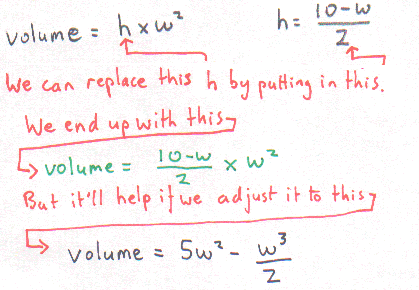 volume = h × w² h = 10-w/2
We can replace this h by putting in this.
We end up with this
volume = 10-w/2 × w²
But it'll help if we adjust it to this
volume = 5w² - w³/2